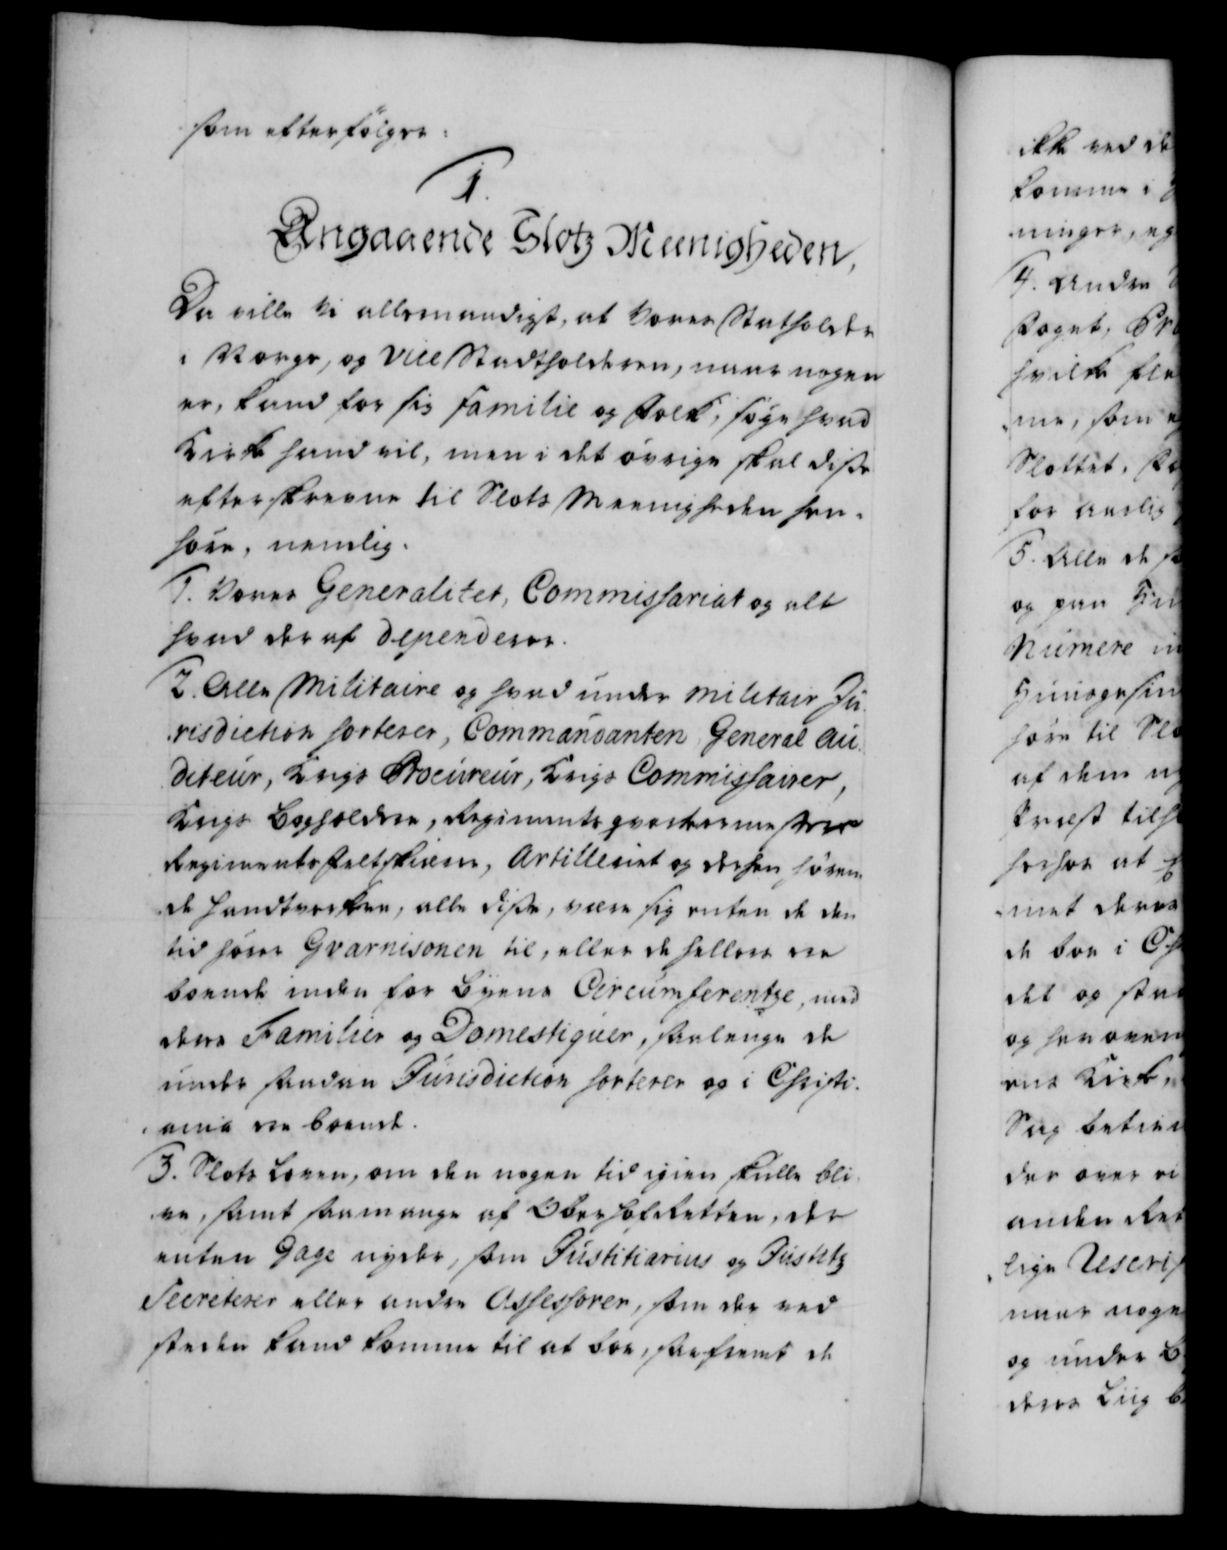 som efterfölger:
1.
Angaaende Slotz Meenigheden,
Da ville Vi allernaadigst, at Vores Statholder
i Norge, og Vice Stadtholderen, naar nogen
er, kand for sig familie og Folk, søge hvad
Kirke hand vil, men i det övrige skal disse
efterskrevne til Slots Meenigheden hen-
höre, nemlig.
1. Vores Generalitet, Commissariat og alt
hvad der af dependerer.
2. Alle Militaire og hvad under militair Ju-
risdiction sorterer, Commandanten General Au-
diteur, Krigs Procureur, Krigs Commissairer,
Krigs Bogholdere, Regimentsqvarteermestere
Regimentsfeltskierer, Artilleriet og derhen hören-
de Handtverkere, alle disse, være sig enten de den
tid hörer Gvarnisonen til, eller de hellers ere
boende inden for Byens Circumferentze, med
deres Familier og Domestiquer, saalenge de
under saadan Jurisdiction sorterer og i Christi-
ania ere boende.
3. Slots Loven, om den nogen tid igien skulle bli-
ve, samt saamange af OberHofsRetten, der
enten Gage nyder, som Justitiarius og Justitz
Secreterer eller andre Assessorer, som der ved
steden kand komme til at boe, saafremt de
ikke ved de
komme i
ninger, og
4. Andre
Foged, Pro
hvilke fle
me, som
Slottet,
for aarlig
5. Alle de
og paa
Numere in
höre til Slo
af dem
Præst tilh
herhos at
met deres
de boe i Ch
det og
og her oven
ens Kirke,
Sag betien
der over vi
anden Ret
lige Uscri
naar noge
og under B
deres Liig b